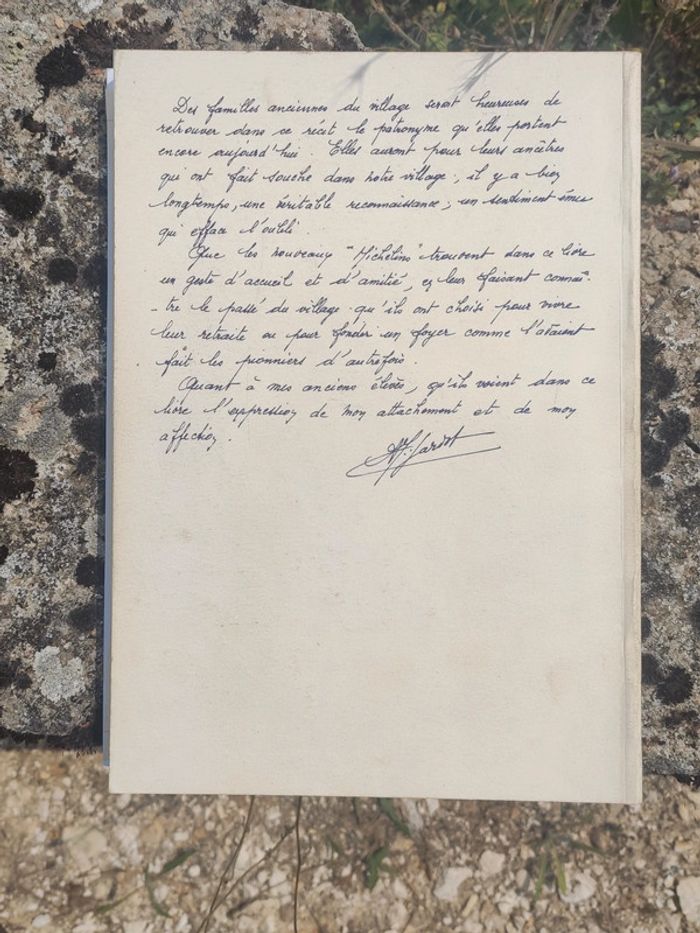 Des familles anciennes du village seront heureuses de
retrouver dans ce récit le patronyme qu'elles portent
encore aujourd'hui. Elles auront pour leurs ancêtres
qui ont fait souche dans notre village, il y a bien
longtemps, une véritable reconnaissance, un sentiment ému
qui efface l'oubli.
Que les nouveaux "Michelins" trouvent dans ce livre
un geste d'accueil et d'amitié, en leur faisant connaî-
-tre le passé du village qu'ils ont choisi pour vivre
leur retraite ou pour fonder un foyer comme l'avaient
fait les pionniers d'autrefois.
Quant à mes anciens élèves, qu'ils voient dans ce
livre l'expression de mon attachement et de mon
affection.